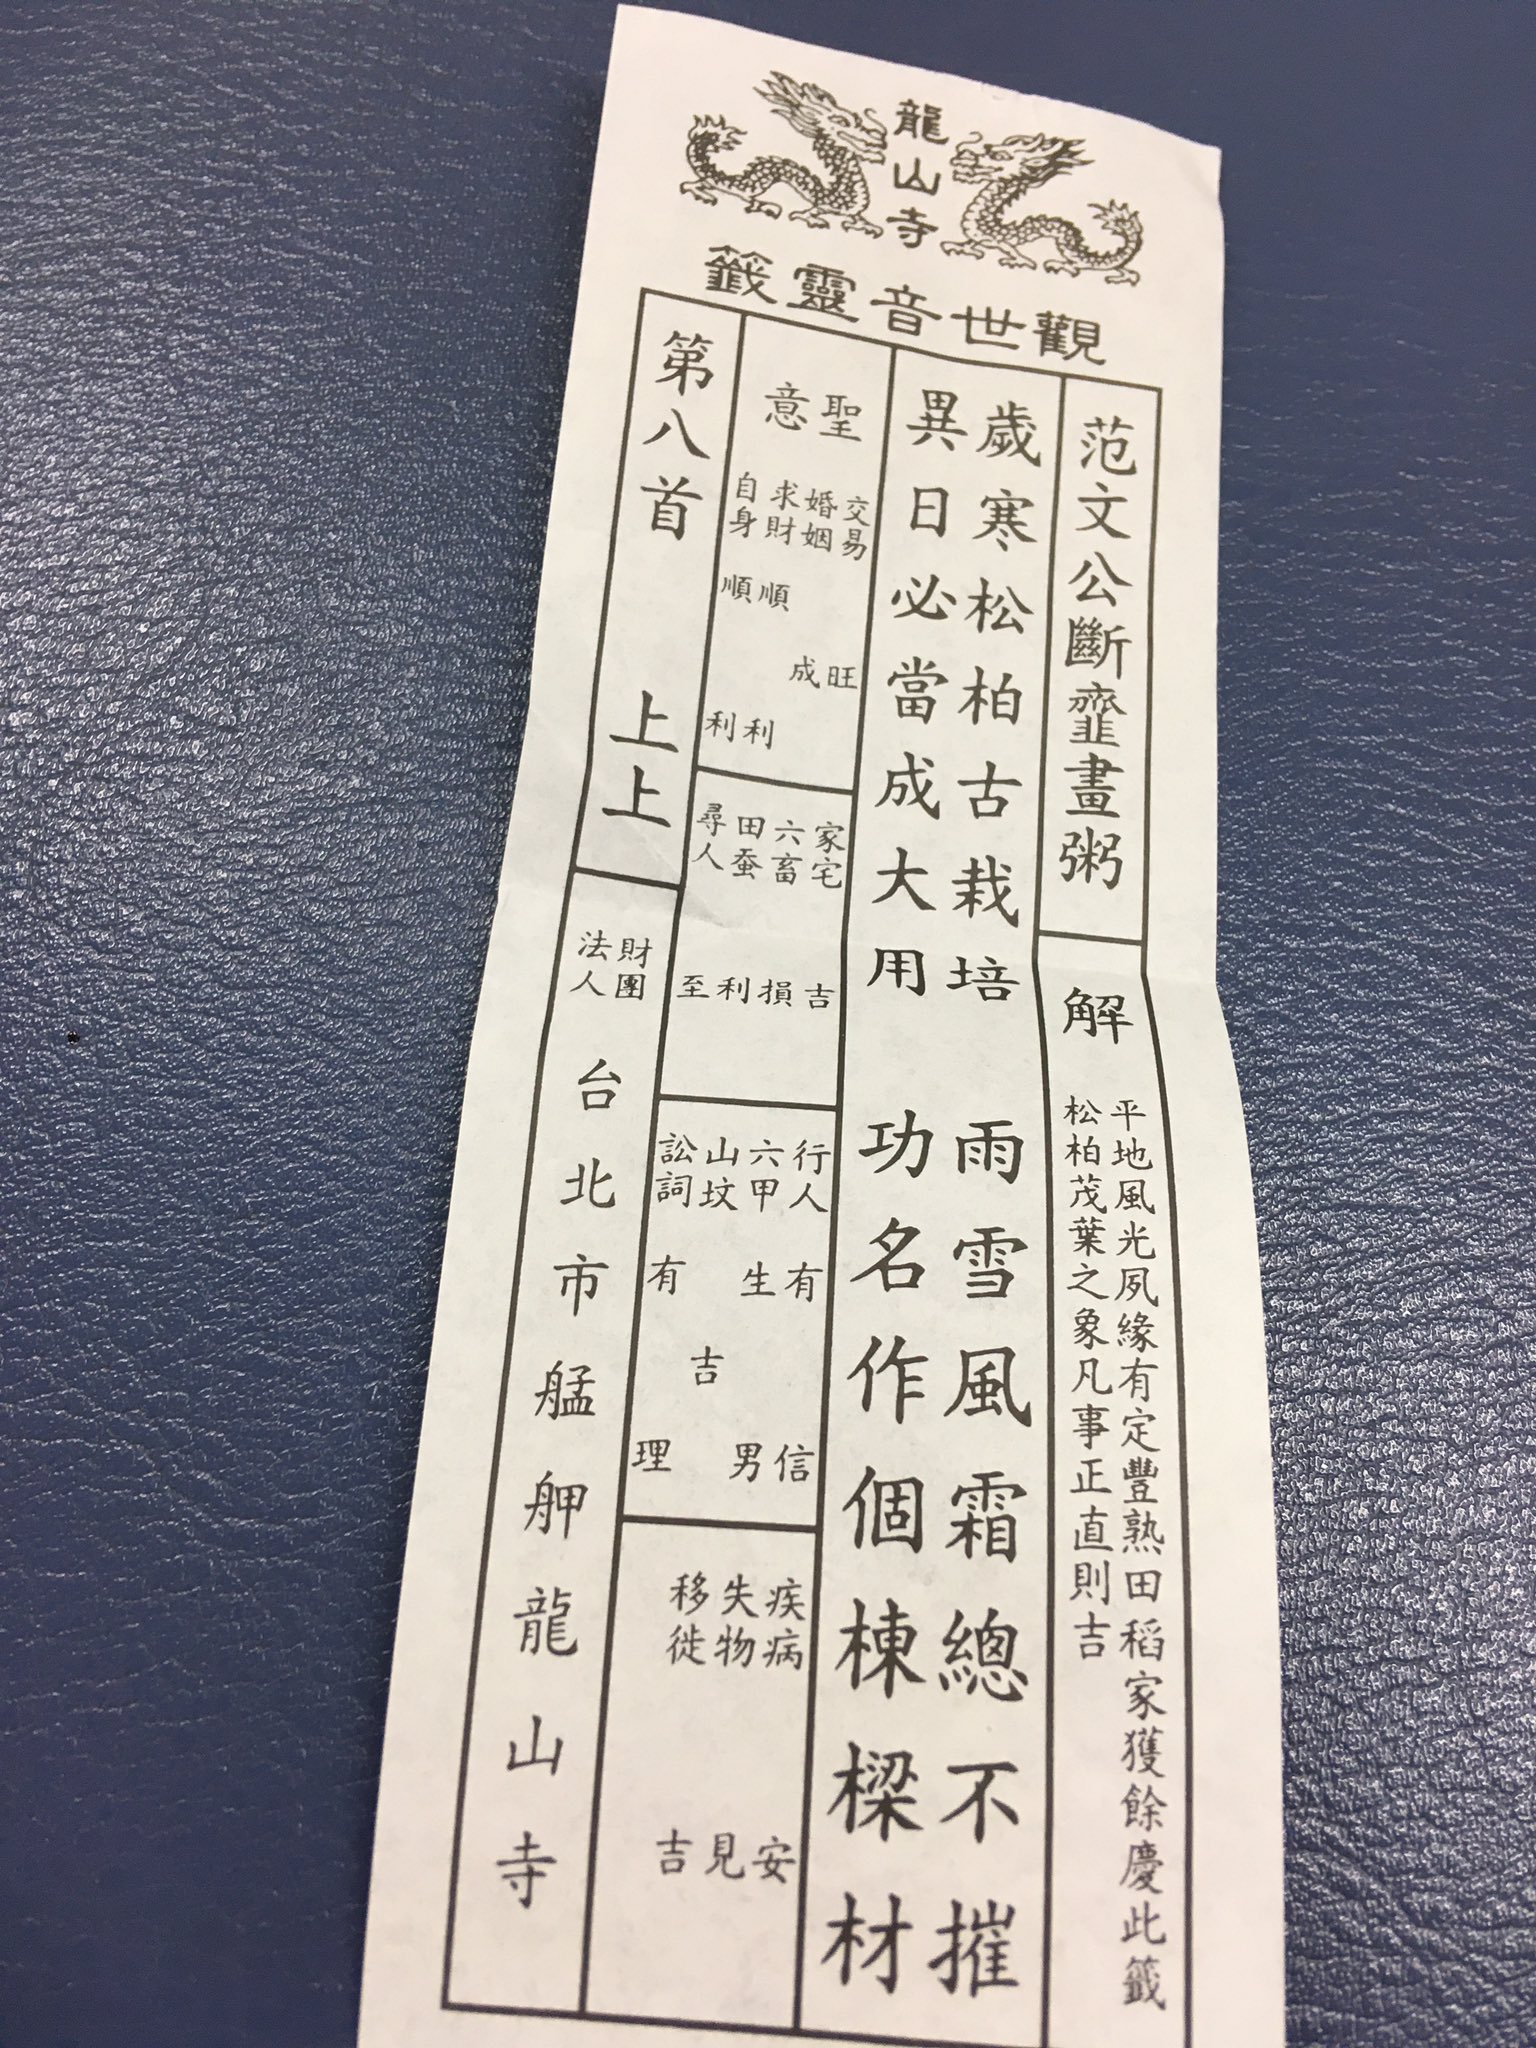 龍山寺
觀世音靈籤
范文公斷虀畫粥
解
平地風光夙緣有定豐熟田稻家獲餘慶此籤
松柏茂葉之象凡事正直則吉
歲寒松柏古栽培 雨雪風霜總不摧
異日必當成大用 功名作個棟樑材
聖意
交易 旺
婚姻 成
求財 順利
自身 順利
家宅 吉
六畜 損
田蚕 利
尋人 至
行人 有信
六甲 生男
山坟 吉
訟詞 有理
疾病 安
失物 見
移徙 吉
第八首 上上
財團法人 台北市艋舺龍山寺